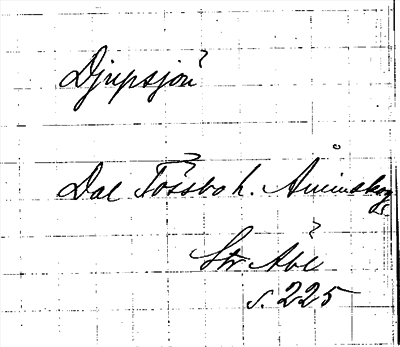 Djupsjön
Dal Tössbo h. Ånimskog
Str. Åbl
s. 225